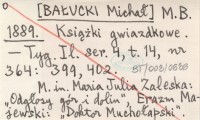 [BAŁUCKI Michał] M.B.
1889. Książki gwiazdkowe.
— Tyg. Il. ser. 4, t. 14, nr
364: 399, 402.
BT/008/0838
M. in. Maria Julia Zaleska:
"Odgłosy gór i dolin", Erazm Ma-
jewski: "Doktor Muchołapski".